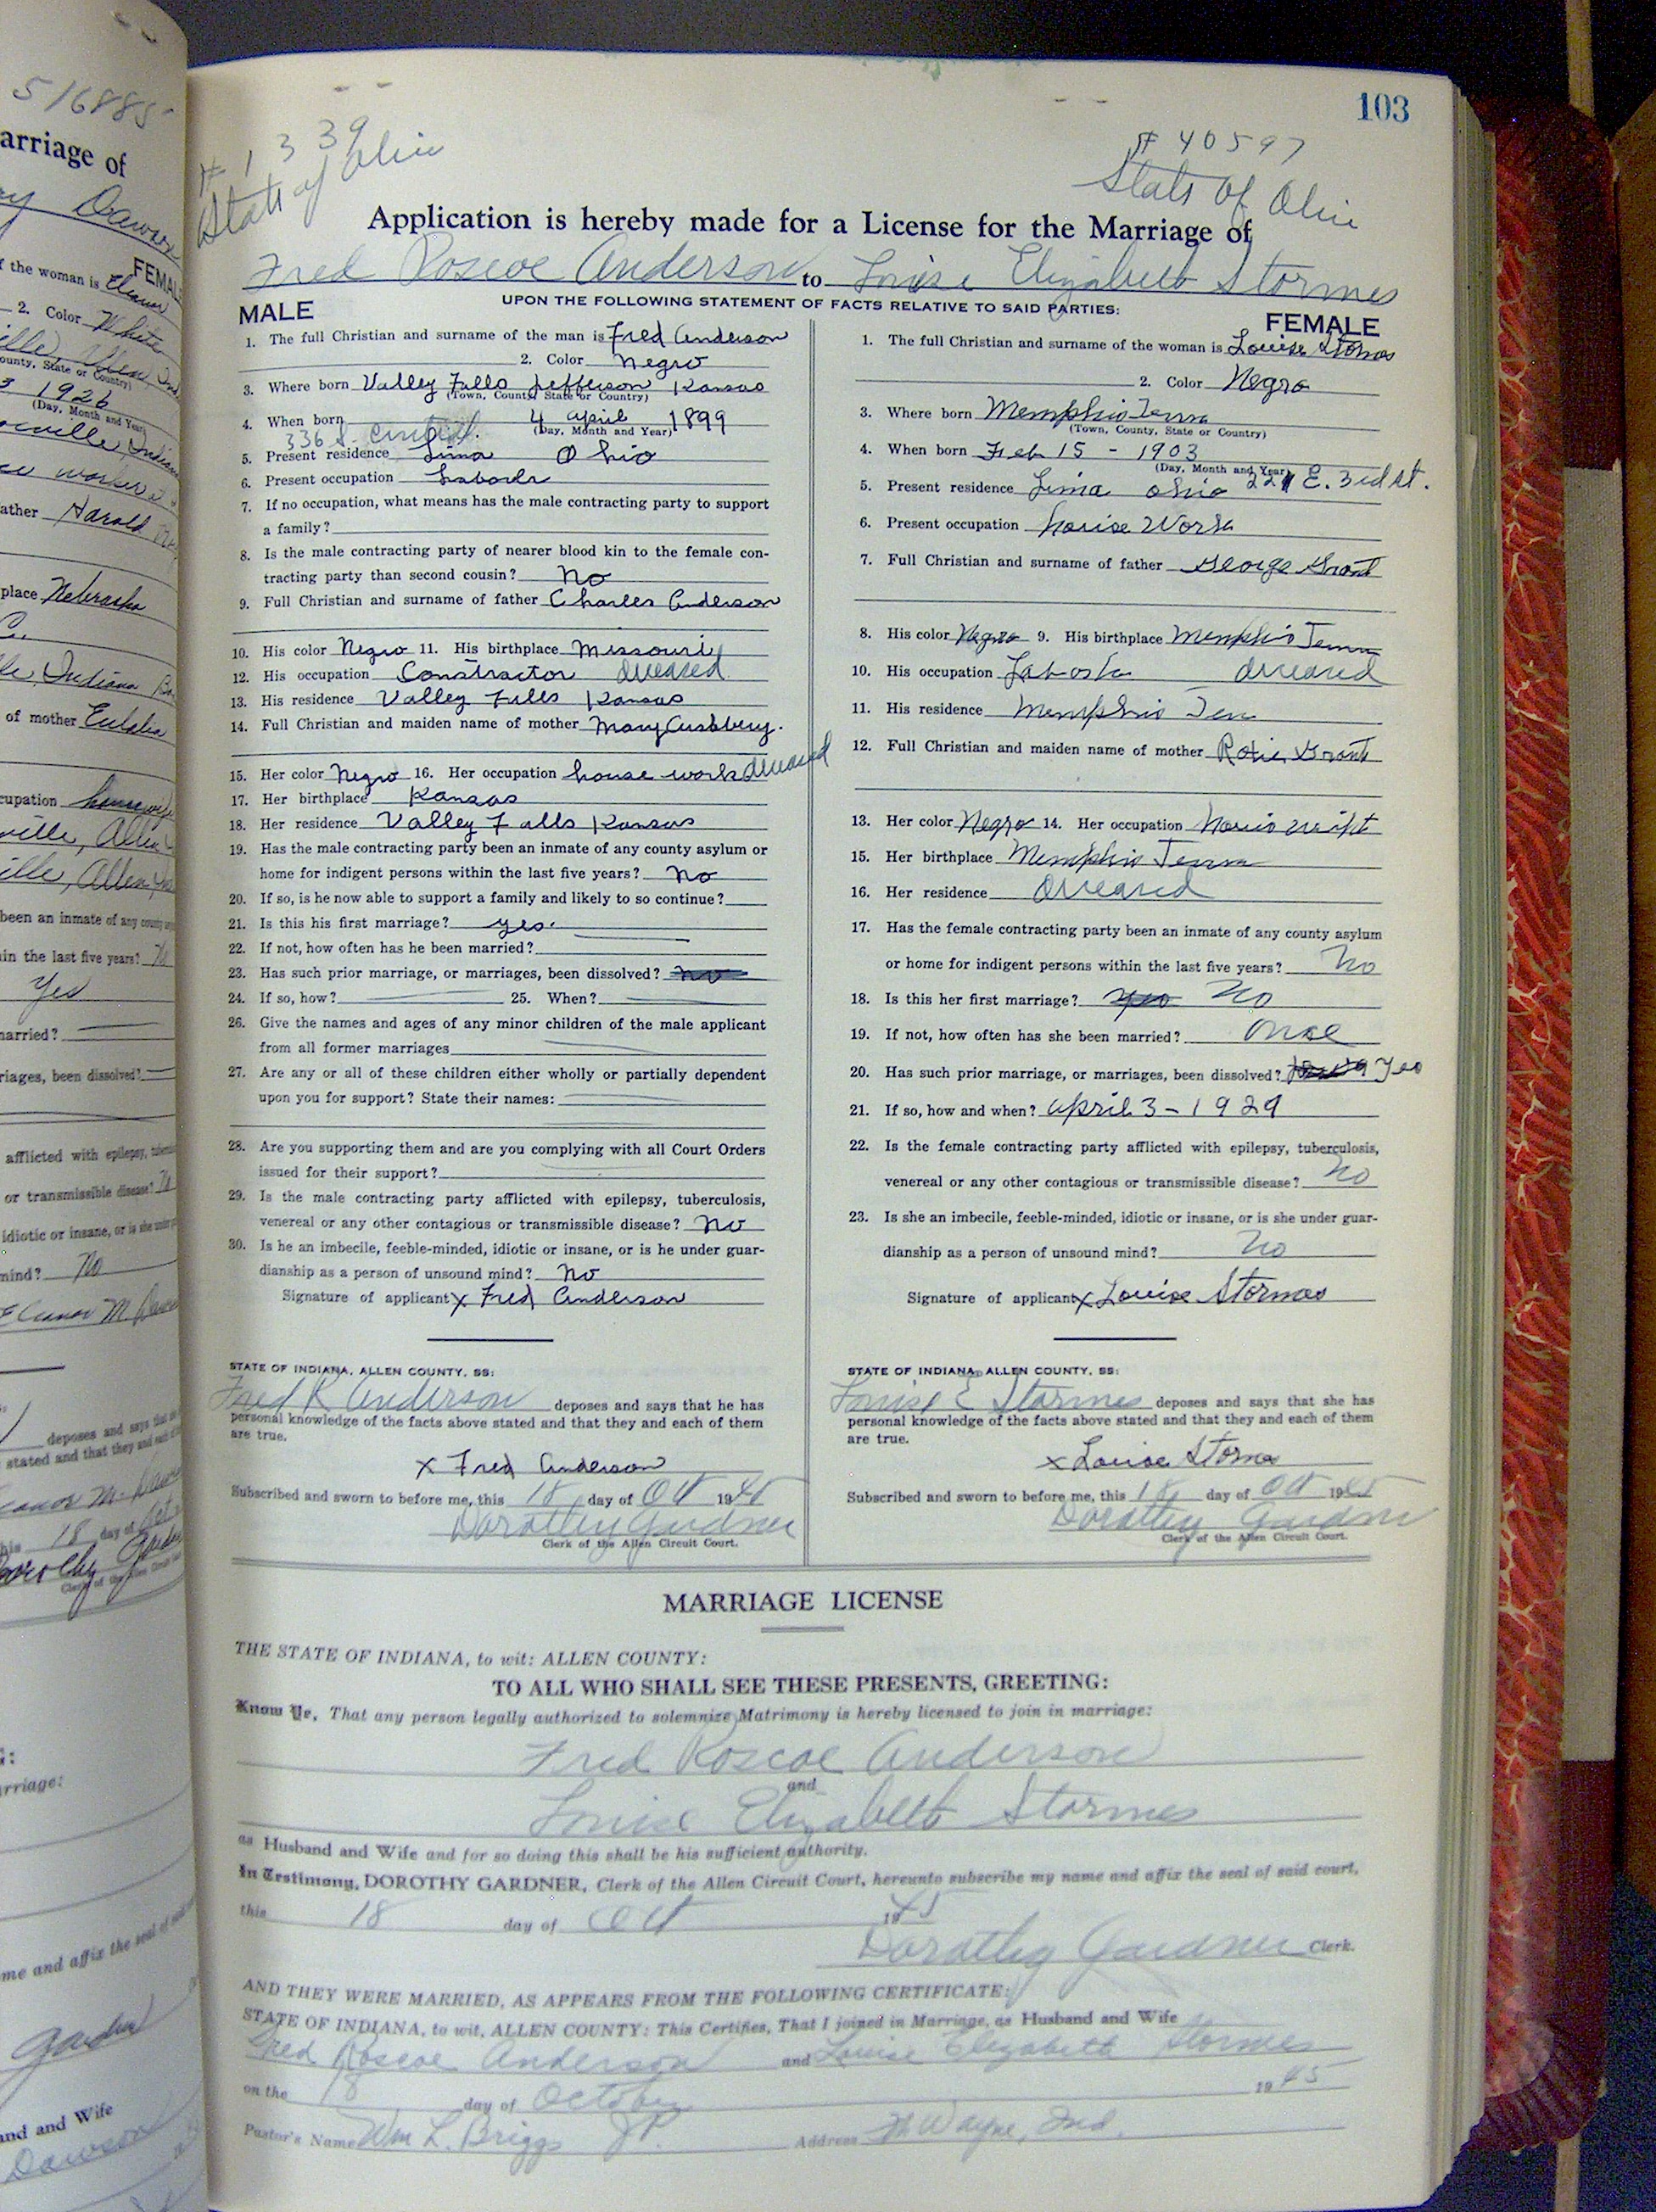 516885
arriage of
Dawson
FEMAL
f the woman is Elanor
2. Color White
County, State or Country)
3 1926
(Day, Month and Year)
ville, Indiana
worker
ather Harold
place Nebraska
C.
le, Indiana
of mother Eulalia
cupation housewife
ville, Allen
ille, Allen
been an inmate of any county
in the last five years? No
Yes
married?
riages, been dissolved?
afflicted with epilepsy,
or transmissible disease?
idiotic or insane, or is she under
mind? No
Eleanor M.
deposes and says that
stated and that they and each of
18 day of
Dorothy
103
# 1339
State of Ohio
# 40597
State of Ohio
Application is hereby made for a License for the Marriage of
Fred Roscoe Anderson to Louise Elizabeth Stormes
UPON THE FOLLOWING STATEMENT OF FACTS RELATIVE TO SAID PARTIES:
MALE
1. The full Christian and surname of the man is Fred Anderson
2. Color Negro
3. Where born Valley Falls Jefferson Kansas
(Town, County, State or Country)
4. When born 4 April 1899
(Day, Month and Year)
336 S.
5. Present residence Lima Ohio
6. Present occupation Laborer
7. If no occupation, what means has the male contracting party to support
a family?
8. Is the male contracting party of nearer blood kin to the female con-
tracting party than second cousin? No
9. Full Christian and surname of father Charles Anderson
10. His color Negro 11. His birthplace Missouri
12. His occupation Constractor deceased
13. His residence Valley Falls Kansas
14. Full Christian and maiden name of mother Mary
15. Her color Negro 16. Her occupation house work deceased
17. Her birthplace Kansas
18. Her residence Valley Falls Kansas
19. Has the male contracting party been an inmate of any county asylum or
home for indigent persons within the last five years? No
20. If so, is he now able to support a family and likely to so continue?
21. Is this his first marriage? yes.
22. If not, how often has he been married?
23. Has such prior marriage, or marriages, been dissolved? no
24. If so, how? 25. When?
26. Give the names and ages of any minor children of the male applicant
from all former marriages
27. Are any or all of these children either wholly or partially dependent
upon you for support? State their names:
28. Are you supporting them and are you complying with all Court Orders
issued for their support?
29. Is the male contracting party afflicted with epilepsy, tuberculosis,
venereal or any other contagious or transmissible disease? No
30. Is he an imbecile, feeble-minded, idiotic or insane, or is he under guar-
dianship as a person of unsound mind? No
Signature of applicant x Fred Anderson
STATE OF INDIANA, ALLEN COUNTY, SS:
Fred R Anderson deposes and says that he has
personal knowledge of the facts above stated and that they and each of them
are true.
x Fred Anderson
Subscribed and sworn to before me, this 18 day of Oct 1945
Dorothy Gardner
Clerk of the Allen Circuit Court.
FEMALE
1. The full Christian and surname of the woman is Louise Stormes
2. Color Negro
3. Where born Memphis Tenn
(Town, County, State or Country)
4. When born Feb 15 - 1903
(Day, Month and Year)
5. Present residence Lima Ohio 221 E. 3rd St.
6. Present occupation House Work
7. Full Christian and surname of father George Grant
8. His color Negro 9. His birthplace Memphis Tenn
10. His occupation Labor deceased
11. His residence Memphis Ten
12. Full Christian and maiden name of mother Grant
13. Her color Negro 14. Her occupation
15. Her birthplace Memphis Tenn
16. Her residence deceased
17. Has the female contracting party been an inmate of any county asylum
or home for indigent persons within the last five years? No
18. Is this her first marriage? yes No
19. If not, how often has she been married? once
20. Has such prior marriage, or marriages, been dissolved? Yes
21. If so, how and when? April 3 - 1929
22. Is the female contracting party afflicted with epilepsy, tuberculosis,
venereal or any other contagious or transmissible disease? No
23. Is she an imbecile, feeble-minded, idiotic or insane, or is she under guar-
dianship as a person of unsound mind? No
Signature of applicant x Louise Stormes
STATE OF INDIANA, ALLEN COUNTY, SS:
Louise E Stormes deposes and says that she has
personal knowledge of the facts above stated and that they and each of them
are true.
x Louise Stormes
Subscribed and sworn to before me, this 18 day of Oct 1945
Dorothy Gardner
Clerk of the Allen Circuit Court.
MARRIAGE LICENSE
THE STATE OF INDIANA, to wit: ALLEN COUNTY:
TO ALL WHO SHALL SEE THESE PRESENTS, GREETING:
Know Ye, That any person legally authorized to solemnize Matrimony is hereby licensed to join in marriage:
Fred Roscoe Anderson
and
Louise Elizabeth Stormes
as Husband and Wife and for so doing this shall be his sufficient authority.
In Testimony, DOROTHY GARDNER, Clerk of the Allen Circuit Court, hereunto subscribe my name and affix the seal of said court,
this 18 day of Oct 1945
Dorothy Gardner Clerk.
AND THEY WERE MARRIED, AS APPEARS FROM THE FOLLOWING CERTIFICATE:
STATE OF INDIANA, to wit, ALLEN COUNTY: This Certifies, That I joined in Marriage, as Husband and Wife
Fred Roscoe Anderson and Louise Elizabeth Stormes
on the 18 day of October 1945
Pastor's Name Wm L. Briggs J.P. Address Ft Wayne, Ind.